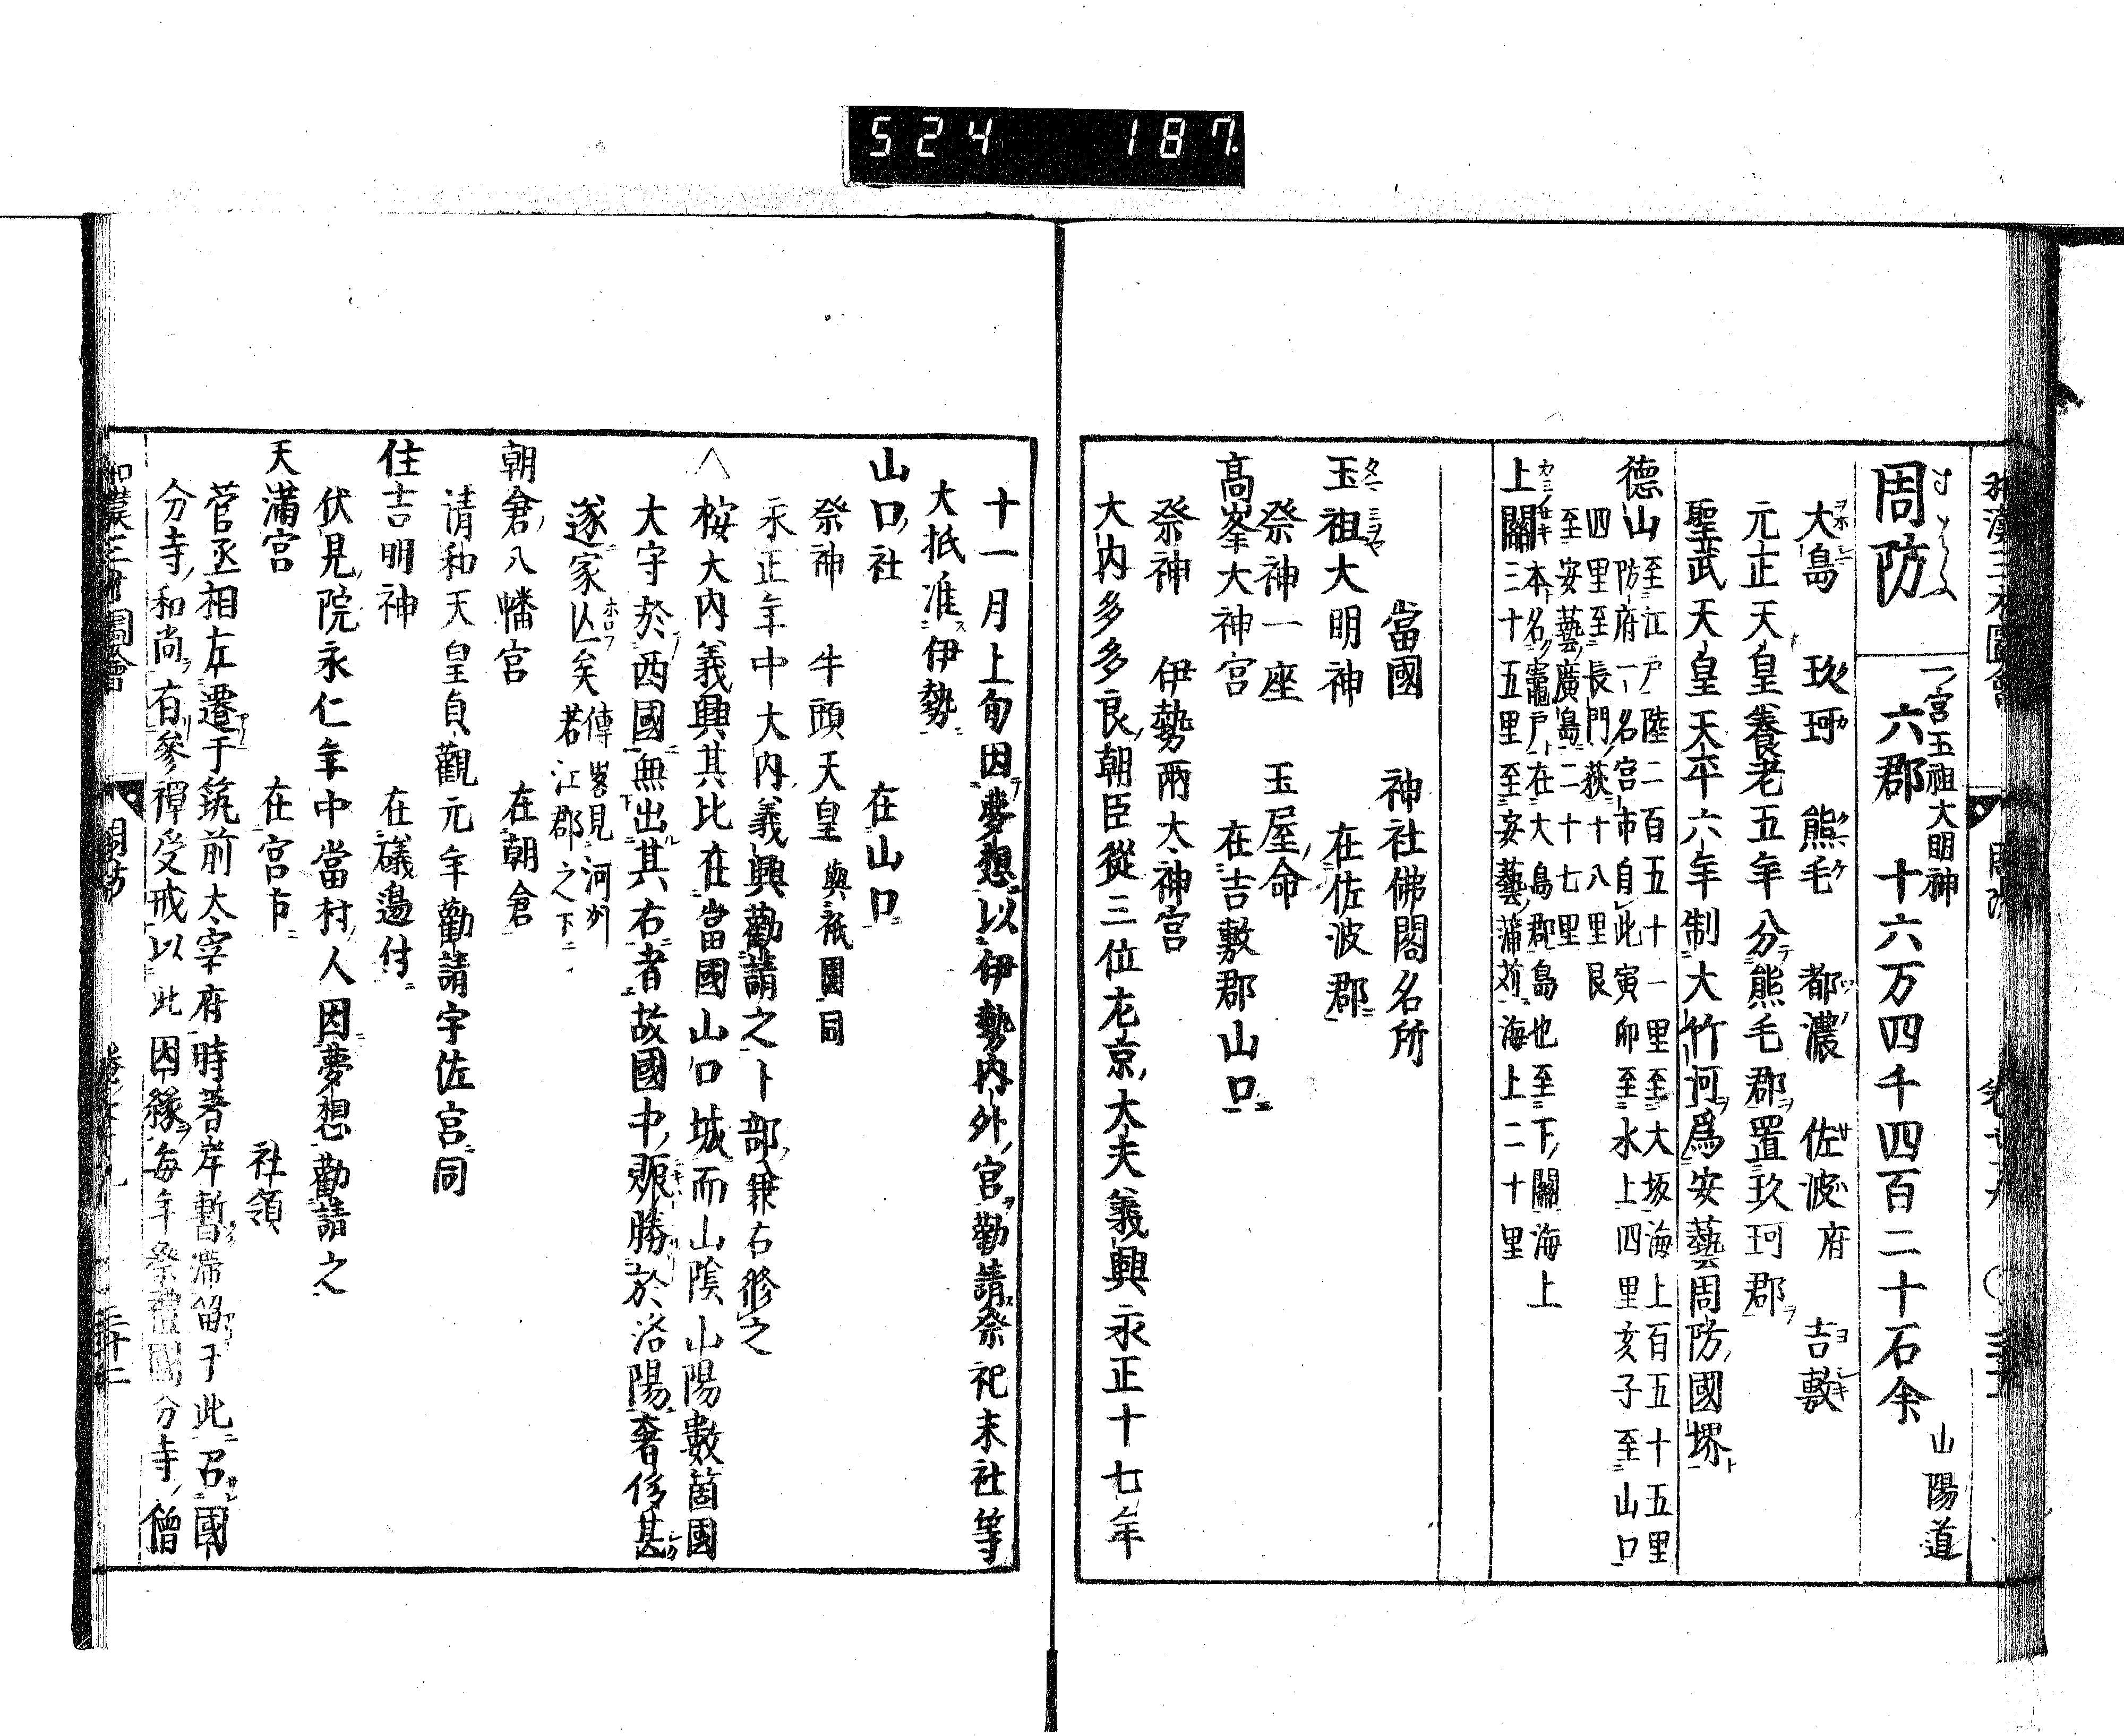 524 187.
周防 すはう
一宮玉祖大明神
六郡 十六万四千四百二十石余
山陽道
大島 玖珂 熊毛 都濃 佐波府 吉敷
元正天皇養老五年分熊毛郡置玖珂郡
聖武天皇天平六年制大竹河爲安藝周防國堺
德山 至江戸陸二百五十一里至大坂海上百五十五里
防府一名宮市自此寅卯至水上四里亥子至山口
四里至長門萩十八里艮
至安藝廣島二十七里
上關 本名竈戸在大島郡島也至下關海上
三十五里至安藝蒲苅海上二十里
當國 神社佛閣名所
玉祖大明神 在佐波郡
祭神一座 玉屋命
高峯大神宮 在吉敷郡山口
祭神 伊勢兩太神宮
大内多多良朝臣從三位左京大夫義興永正十七年
十一月上旬因夢想以伊勢内外宮勸請祭祀末社等
大抵准伊勢
山口社 在山口
祭神 牛頭天皇 與祇園同
永正年中大内義興勸請之卜部兼右修之
△桉大内義興其比在當國山口城而山陰山陽數箇國
大守於西國無出其右者故國中賑勝於洛陽奢侈甚
遂家亾矣 傳畧見河州
若江郡之下
朝倉八幡宮 在朝倉
清和天皇貞觀元年勸請宇佐宮同
住吉明神 在礒邉村
伏見院永仁年中當村人因夢想勸請之
天滿宮 在宮市 社領
菅丞相左遷于筑前太宰府時著岸暫滯留于此召國
分寺和尚有參禪受戒以此因縁毎年祭禮國分寺僧
和漢三才圖會 周防